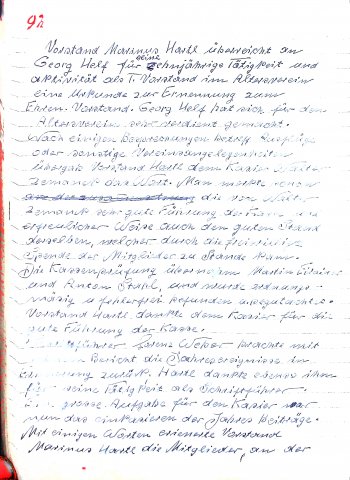 9
Vorstand Marinus Hartl überreicht an
Georg Helf für seine Zehnjährige Tätigkeit und
aktivität als 1. Vorstand im Altersverein
eine Urkunde zur Ernennung zum
Ehren. Vorstand. Georg Helf hat sich für den
Altersverein sehr verdient gemacht.
Nach einigen Besprechungen Ausflüge
oder sonstige Vereinsangelegenheiten
übergab Vorstand Hartl dem Kasier
Zemanek das Wort. Man merkte schon
die von
Zemanek sehr gute Führung der
erfreulicher Weise auch den guten Stand
derselben, welcher durch die
Spende der Mitglieder zu Stande kam.
Die Kassenprüfung übernahm Martin
und Anton und wurde ordnungs-
mässig u fehlerfrei befunden
Vorstand Hartl dankte dem Kasier für die
gute Führung der Kasse.
Lorenz Weber brachte mit
Bericht die Jahresereignisse in
zurück. Hartl dankte ebenso ihm
seine Tätigkeit als Schriftführer.
grosse Aufgabe für den Kasier war
nun das einkasieren der Jahres Beiträge.
Mit einigen Worten erinerte Vorstand
Marinus Hartl die Mitglieder, an der